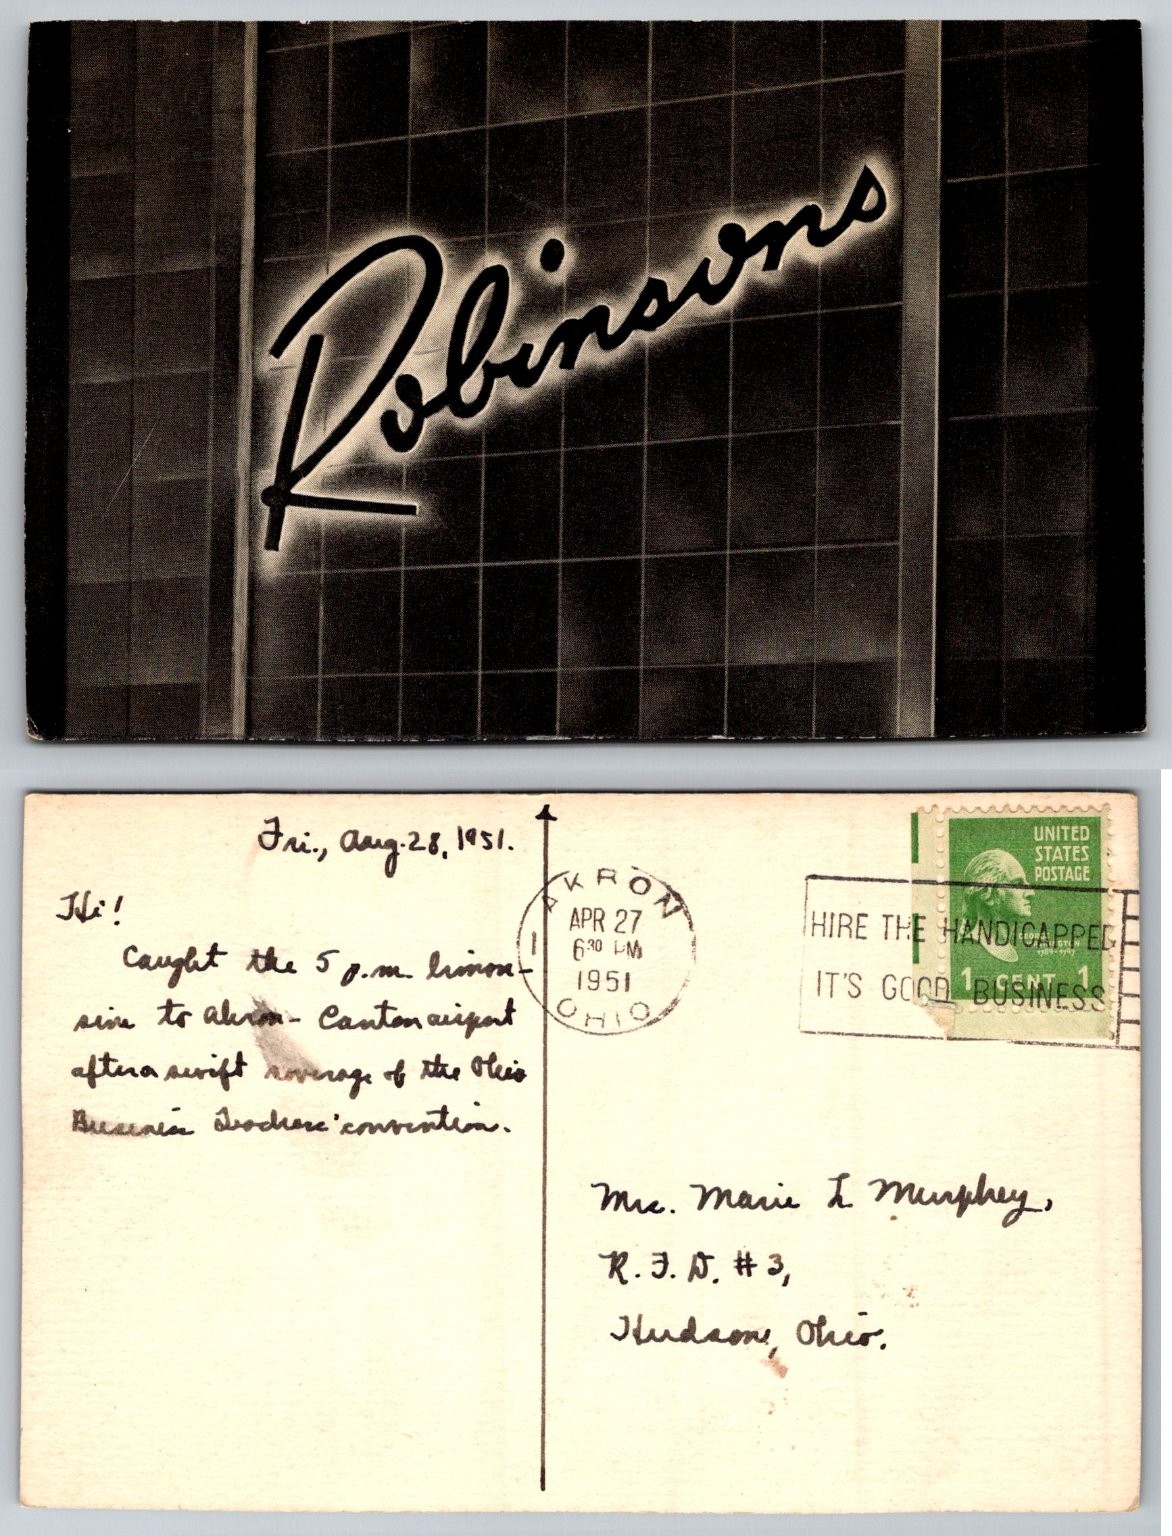 Robinsons
Fri., Aug. 28, 1951.
Hi!
Caught the 5 p.m. limou-
sine to Akron-Canton airport
after a swift coverage of the Ohio
Business Teachers' convention.
AKRON
APR 27
6 30 PM
1951
OHIO
1
HIRE THE HANDICAPPED
IT'S GOOD BUSINESS
UNITED
STATES
POSTAGE
1 CENT 1
Mrs. Marie L Murphey,
R. F. D. # 3,
Hudson, Ohio.